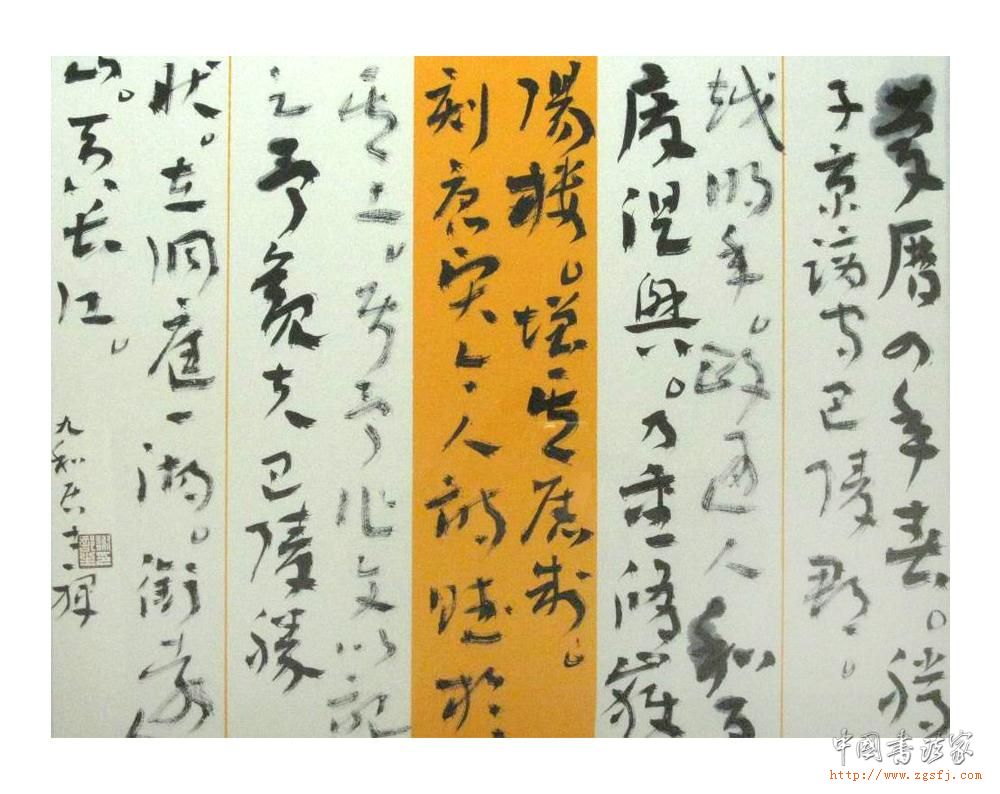 慶曆四年春。滕
子京謫守巴陵郡。
越明年。政通人和百
廢俱興。乃重修嶽
陽楼。增其舊制。
刻唐賢今人詩賦於
其上。屬予作文以記
之予觀夫巴陵勝
状。在洞庭一湖。銜遠
山。吞長江。
九和居士輝
中国书法家
http://www.zgsfj.com